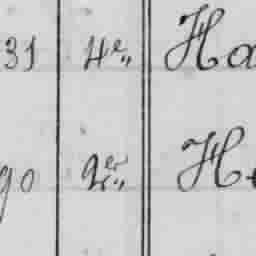 31 4e„ Ha
90 2er„ H